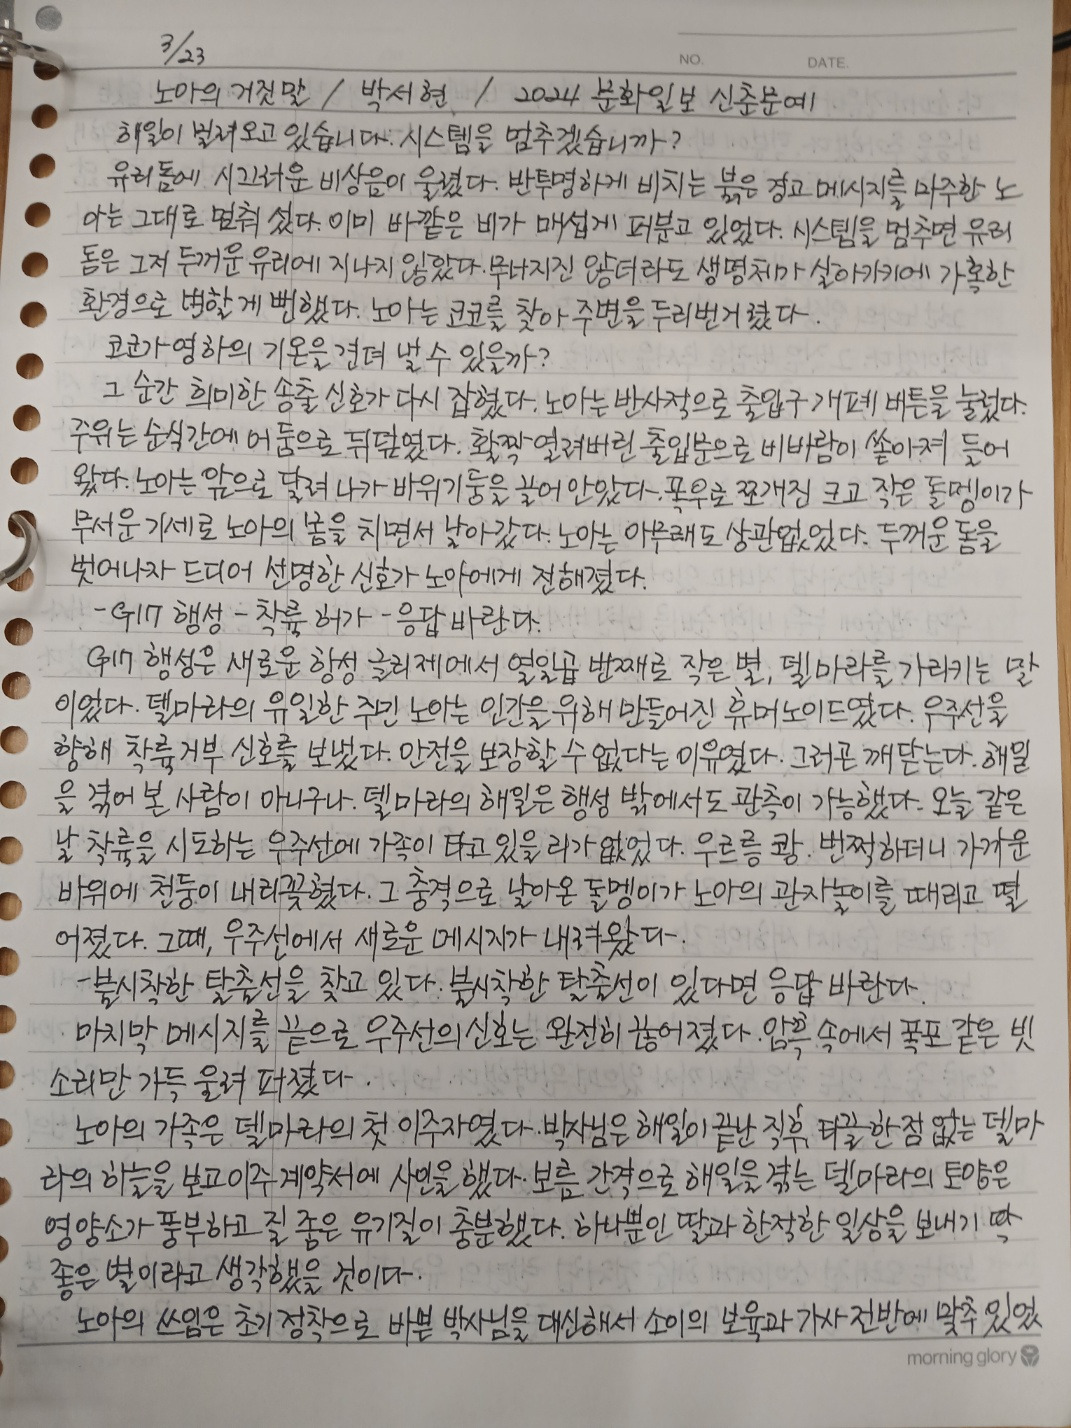 3/23
NO. DATE.
노아의 거짓말 / 박서현 / 2024 문화일보 신춘문예
해일이 벌려오고 있습니다. 시스템을 멈추겠습니까?
유리돔에 시끄러운 비상음이 울렸다. 반투명하게 비치는 붉은 경고 메시지를 마주한 노
아는 그대로 멈춰 섰다. 이미 바깥은 비가 매섭게 퍼붇고 있었다. 시스템을 멈추면 유리
돔은 그저 두꺼운 유리에 지나지 않았다. 무너지진 않더라도 생명체가 살아가기에 가혹한
환경으로 변할 게 뻔했다. 노아는 코코를 찾아 주변을 두리번거렸다.
코코가 영하의 기온을 견뎌 낼 수 있을까?
그 순간 희미한 송출 신호가 다시 잡혔다. 노아는 반사적으로 출입구 개폐 버튼을 눌렀다.
주위는 순식간에 어둠으로 뒤덮였다. 활짝 열려버린 출입문으로 비바람이 쏟아져 들어
왔다. 노아는 앞으로 달려 나가 바위기둥을 끌어안았다. 폭우로 쪼개진 크고 작은 돌멩이가
무서운 기세로 노아의 몸을 치면서 날아갔다. 노아는 아무래도 상관없었다. 두꺼운 돔을
벗어나자 드디어 선명한 신호가 노아에게 전해졌다.
- G17 행성 - 착륙 허가 - 응답 바란다.
G17 행성은 새로운 항성 글리제에서 열일곱 번째로 작은 별, 델마라를 가리키는 말
이었다. 델마라의 유일한 주민 노아는 인간을 위해 만들어진 휴머노이드였다. 우주선을
향해 착륙 거부 신호를 보냈다. 안전을 보장할 수 없다는 이유였다. 그러곤 깨닫는다. 해일
을 겪어 본 사람이 아니구나. 델마라의 해일은 행성 밖에서도 관측이 가능했다. 오늘 같은
날 착륙을 시도하는 우주선에 가족이 타고 있을 리가 없었다. 우르릉 쾅. 번쩍하더니 가까운
바위에 천둥이 내리꽂혔다. 그 충격으로 날아온 돌멩이가 노아의 관자놀이를 때리고 떨
어졌다. 그때, 우주선에서 새로운 메시지가 내려왔다.
- 불시착한 탈출선을 찾고 있다. 불시착한 탈출선이 있다면 응답 바란다.
마지막 메시지를 끝으로 우주선의 신호는 완전히 끊어졌다. 암흑 속에서 폭포 같은 빗
소리만 가득 울려 퍼졌다.
노아의 가족은 델마라의 첫 이주자였다. 박사님은 해일이 끝난 직후, 티끌 한 점 없는 델마
라의 하늘을 보고 이주 계약서에 사인을 했다. 보름 간격으로 해일을 겪는 델마라의 토양은
영양소가 풍부하고 질 좋은 유기질이 충분했다. 하나뿐인 딸과 한적한 일상을 보내기 딱
좋은 별이라고 생각했을 것이다.
노아의 쓰임은 초기 정착으로 바쁜 박사님을 대신해서 소이의 보육과 가사 전반에 맞추 있었
morning glory